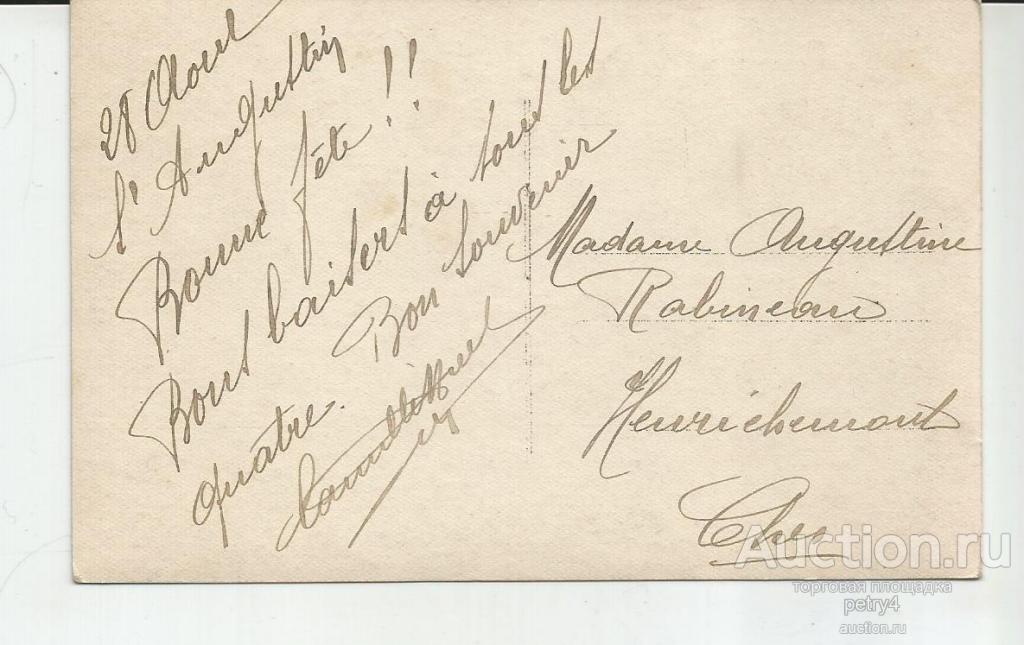 28 Aout
St Augustin
Bonne fête!!
Bons baisers à tous les
quatre. Bon souvenir
Madame Augustine
Rabineau
Henrichemont
Cher
Auction.ru
торговая площадка
petry4
auction.ru